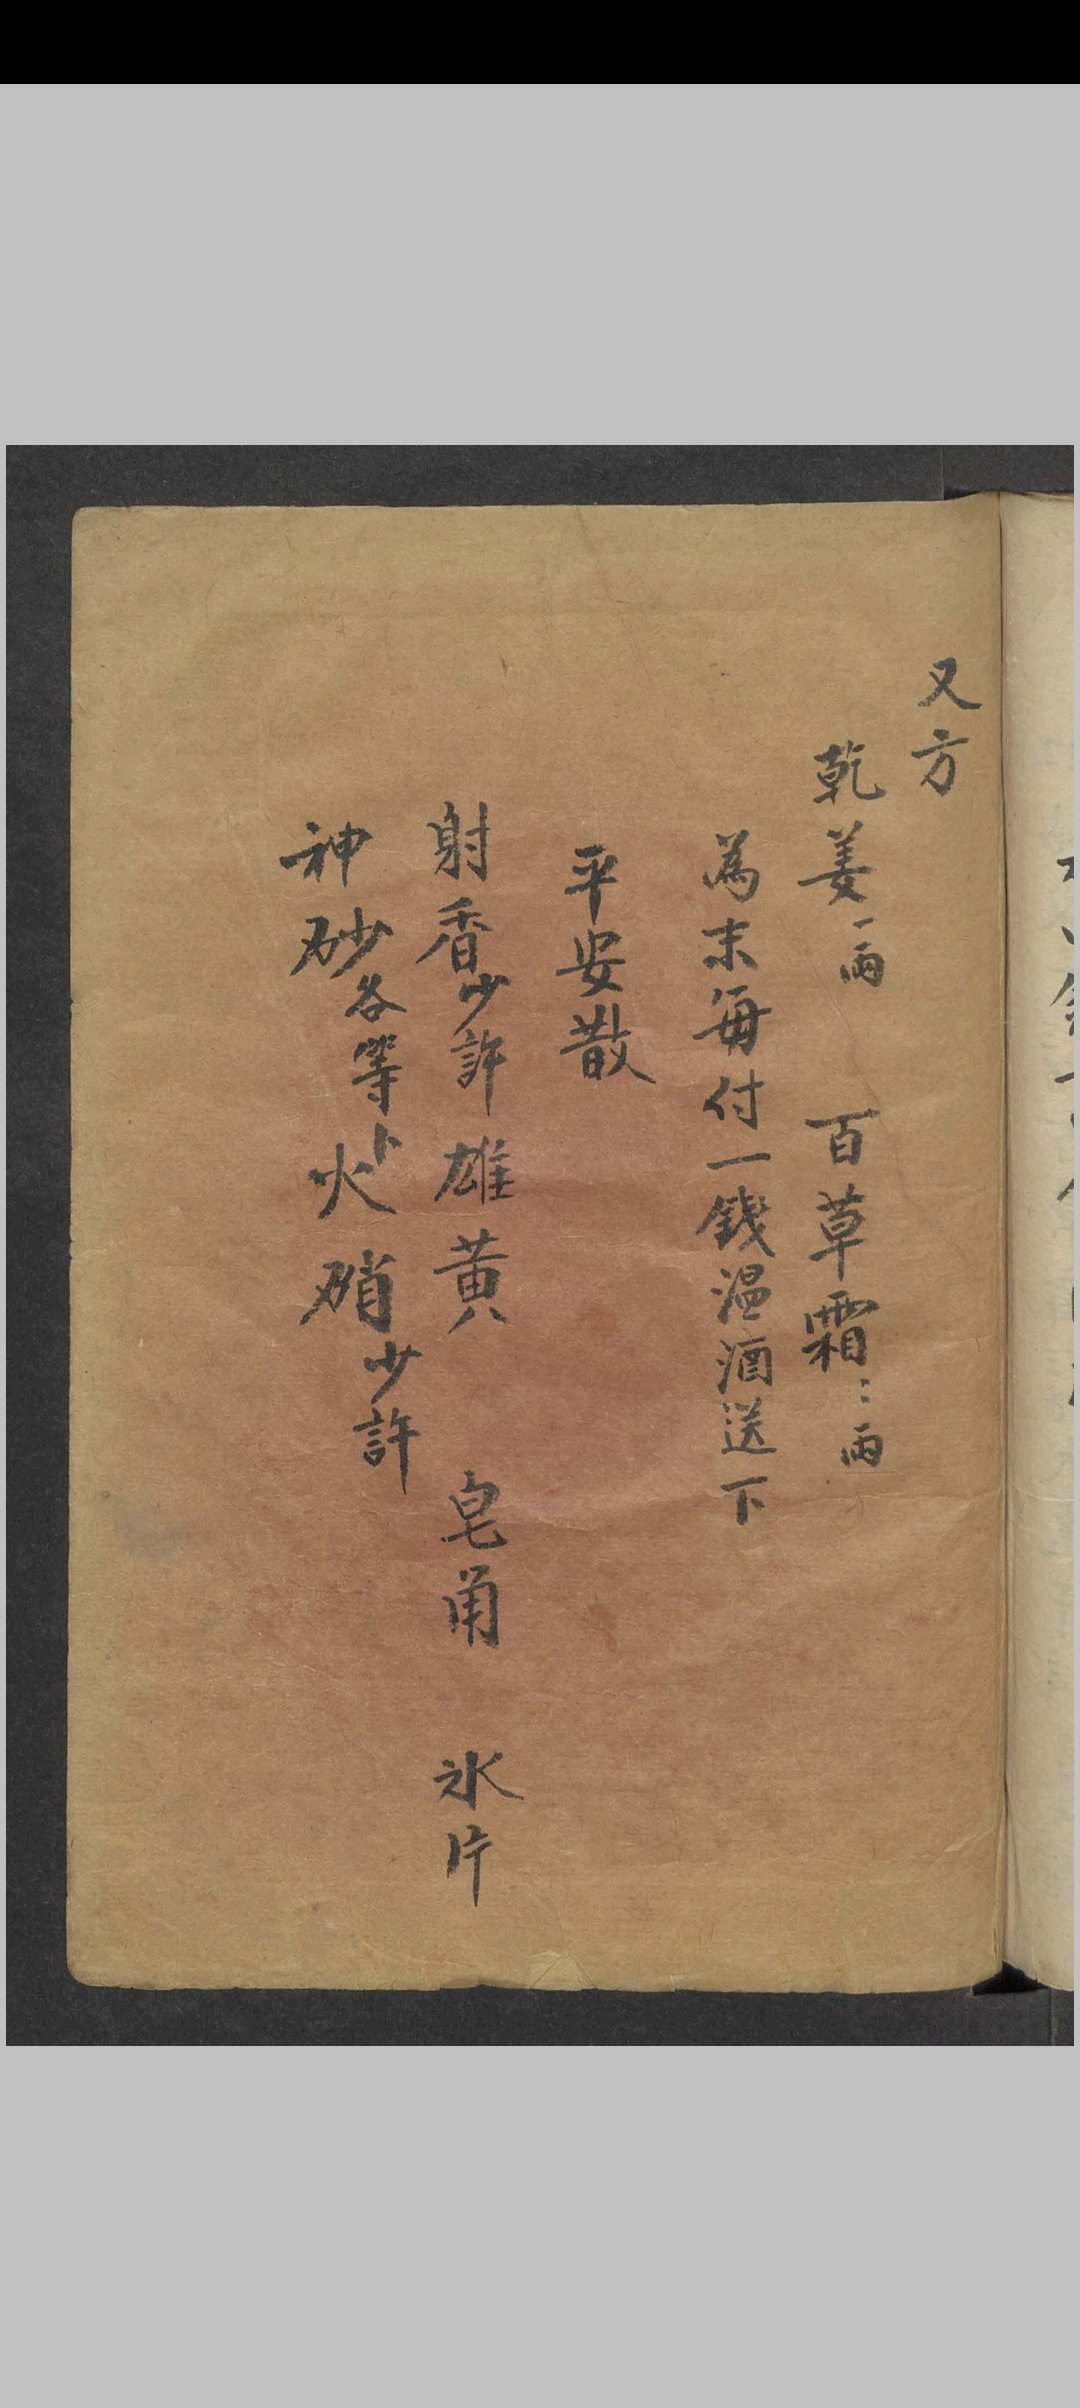 又方
乾姜一兩 百草霜二兩
為末每付一錢温酒送下
平安散
射香少許 雄黄 皂角 氷片
神砂各等卜 火硝少許